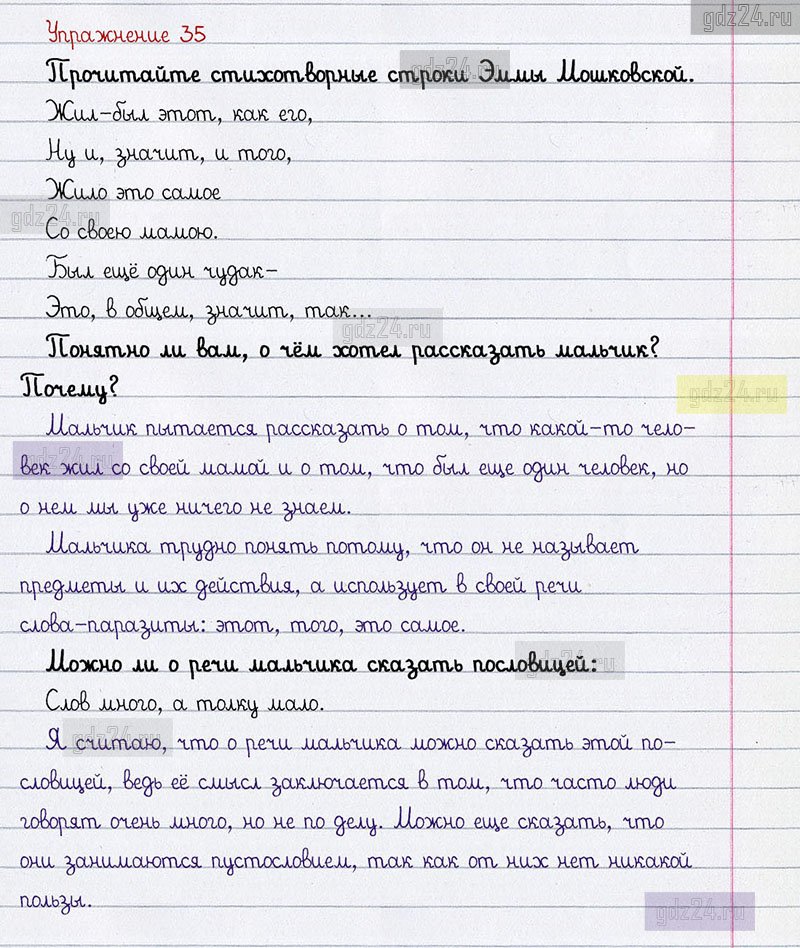 gdz24.ru
Упражнение 35
Прочитайте стихотворные строки Эммы Мошковской.
gdz24.ru
Жил-был этот, как его,
Ну и, значит, и того,
Жило это самое
gdz24.ru
Со своею мамою.
Был ещё один чудак-
Это, в общем, значит, так...
gdz24.ru
Понятно ли вам, о чём хотел рассказать мальчик?
Почему?
gdz24.ru
Мальчик пытается рассказать о том, что какой-то чело-
век жил со своей мамой и о том, что был еще один человек, но
gdz24.ru
о нем мы уже ничего не знаем.
Мальчика трудно понять потому, что он не называет
предметы и их действия, а использует в своей речи
слова-паразиты: этот, того, это самое.
Можно ли о речи мальчика сказать пословицей:
gdz24.ru
Слов много, а толку мало.
gdz24.ru
Я считаю, что о речи мальчика можно сказать этой по-
словицей, ведь её смысл заключается в том, что часто люди
говорят очень много, но не по делу. Можно еще сказать, что
они занимаются пустословием, так как от них нет никакой
пользы.
gdz24.ru